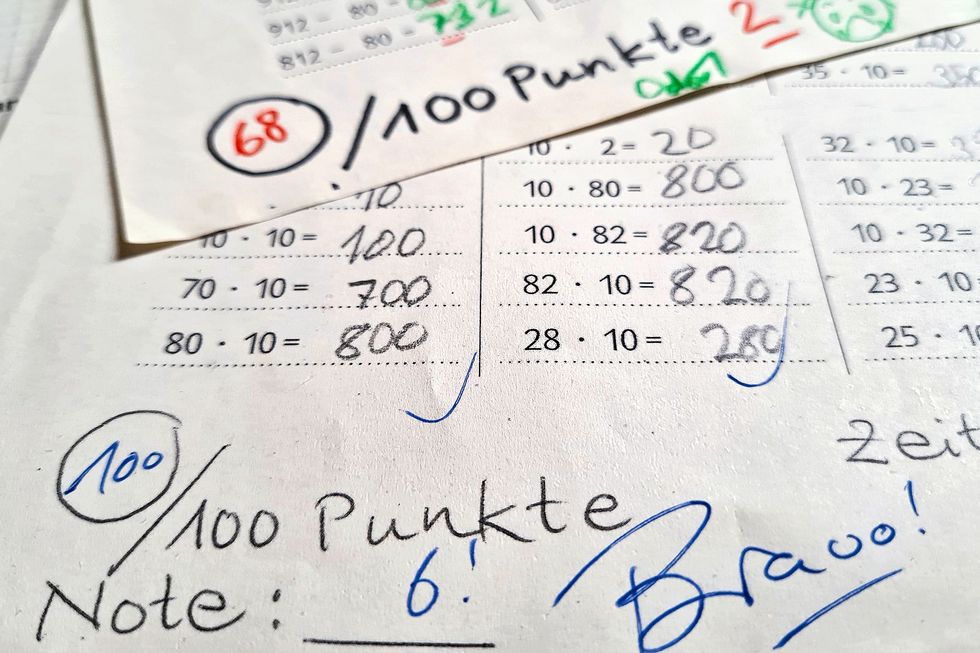 912 - 80 -
812 - 80 - 732
68 /100 Punkte 2
35 · 10 = 350
10 · 2 = 20
32 · 10 =
10
10 · 80 = 800
10 · 23 =
10 · 10 = 100
10 · 82 = 820
10 · 32 =
70 · 10 = 700
82 · 10 = 820
23 · 10
80 · 10 = 800
28 · 10 = 280
25 · 10
Zeit
100 /100 Punkte
Note: 6! Bravo!